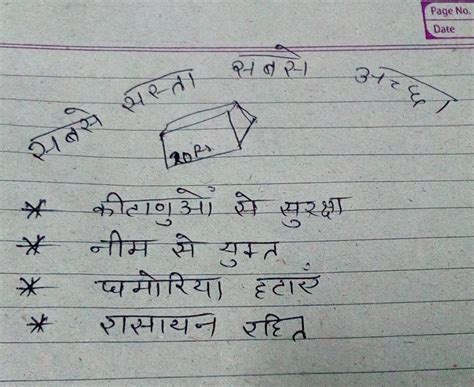 Page No.
Date
सबसे सस्ता सबसे अच्छा
20रु.
* कीटाणुओं से सुरक्षा
* नीम से युक्त
* घमोरिया हटाएं
* रासायन रहित